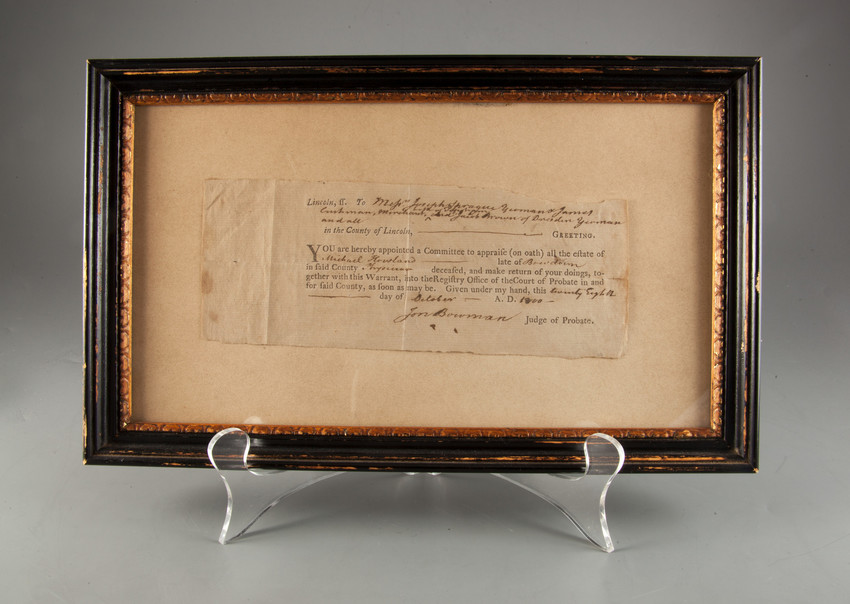 Lincoln, ſſ. To Messrs Joseph Sprague Yeoman & James
Cushman, Merchant, both of and Jacob Brown of Dresden Yeoman
and all
in the County of Lincoln, GREETING.
YOU are hereby appointed a Committee to appraiſe (on oath) all the eſtate of
Michael Howland late of Bowdoin
in ſaid County deceaſed, and make return of your doings, to-
gether with this Warrant, into the Regiſtry Office of the Court of Probate in and
for ſaid County, as ſoon as may be. Given under my hand, this twenty Eighth
day of October A. D. 1800
Jon Bowman Judge of Probate.